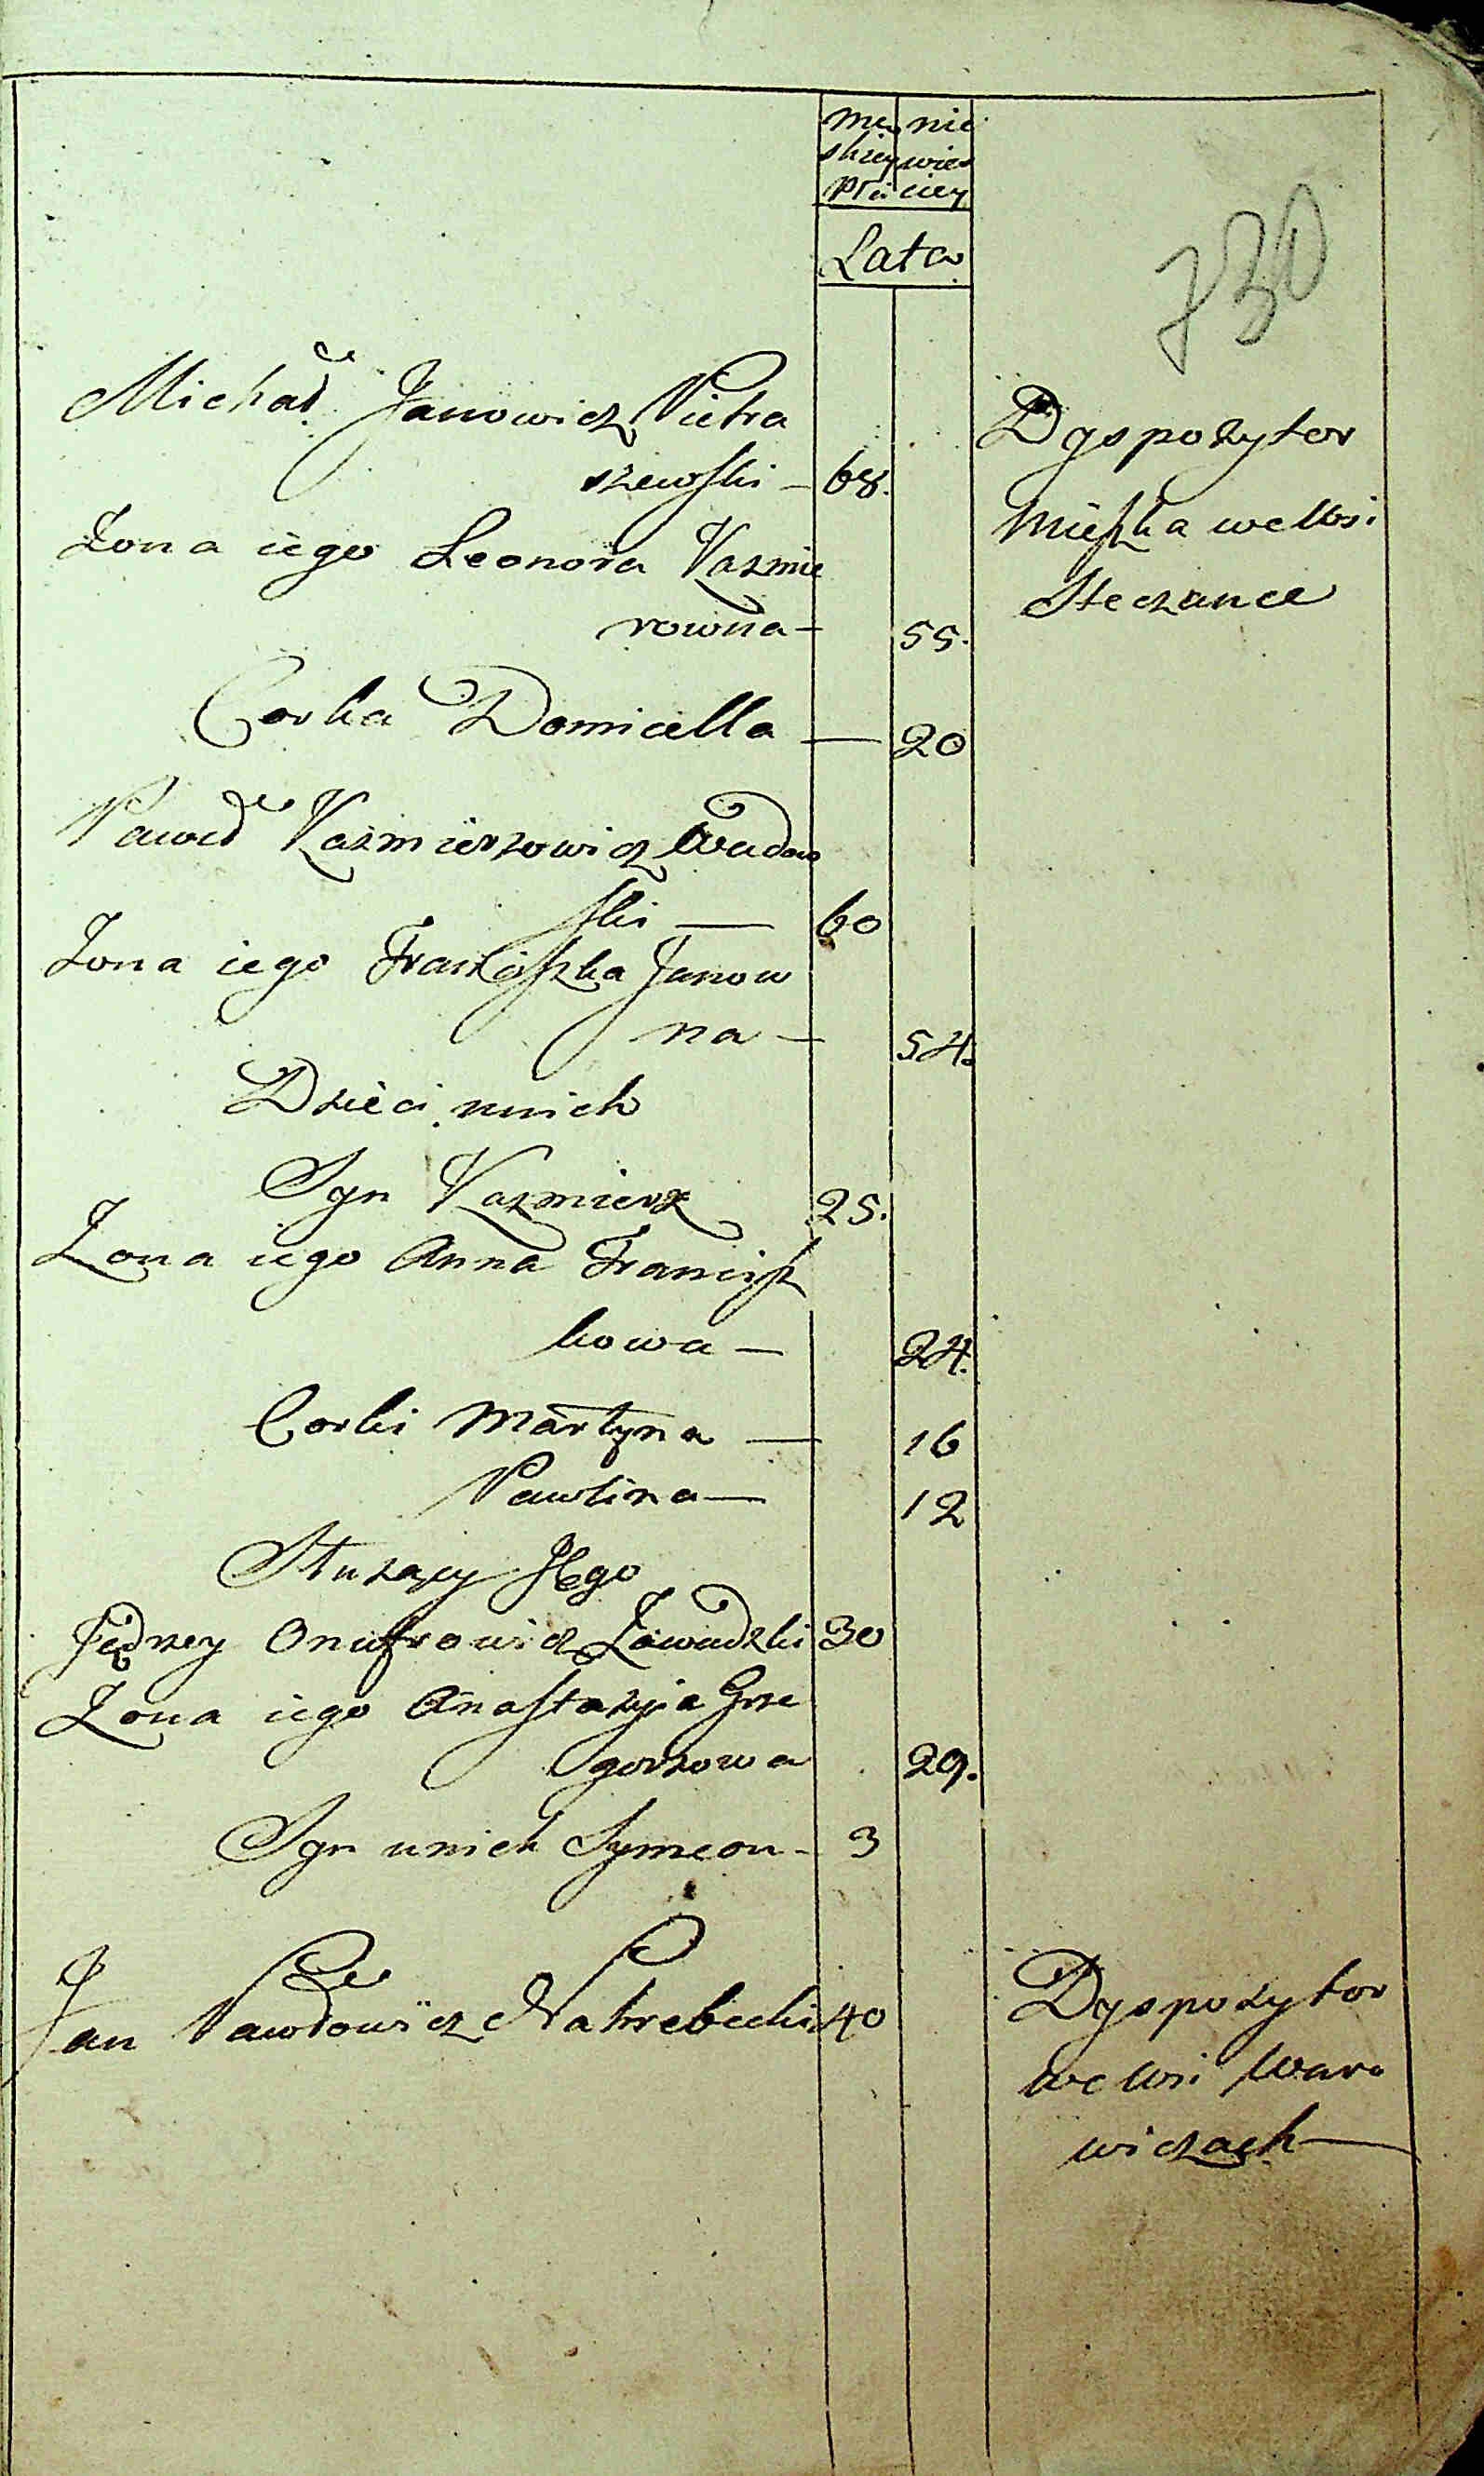 mę nie
skiey wies
Płci ciey
Lata
730
Michał Janowicz Pietra
szewski – 68.
Dyspozytor
Mieszka we Wsi
Steczance
Zona iego Leonora Kazmie
rowna – 55.
Corka Domicella — 20
Paweł Kazmierzowicz Wadow
ski — 60
Zona iego Franciszka Janow
na – 54.
Dzieci unich
Syn Kazmierz 25.
Zona iego Anna Francisz
kowa – 24.
Corki Martyna — 16
Pawlina — 12
Słuzący Jego
Jędrzey Onufrowicz Zawadzki 30
Zona iego Anastazyia Grze
gorzowa 29.
Syn unich Symeon – 3
Jan Pawłowicz Nahrebecki 40
Dyspozytor
we Wsi Waro
wiczach —